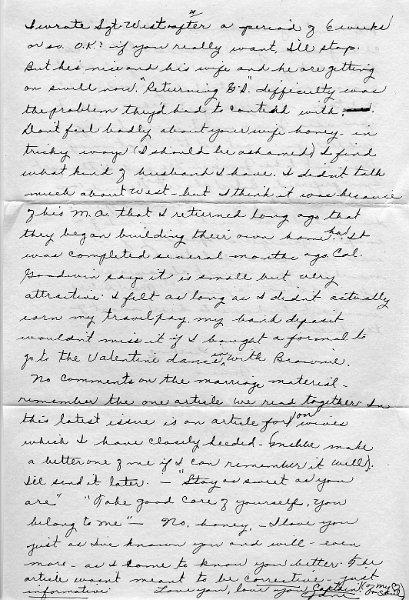 I wrote Sgt. West after a period of 6 weeks
or so. O.K? if you really want, I'll stop.
But he's nice and his wife and he are getting
on swell now. "Returning G.I." difficulty was
the problem they'd had to contend with.
Don't feel badly about your wife honey - in
tricky ways (I should be ashamed) I find
what kind of husband I have. I didn't talk
much about West - but I think it was because
of his M.A. that I returned long ago that
they began building their own home. It
was completed several months ago. Col.
Goodwin says it is small but very
attractive. I felt as long as I didn't actually
earn my travel pay my bank deposit
wouldn't miss it if I bought a formal to
go to the Valentine dance in, with Brownie.
No comments on the marriage material -
remember the one article we read together. In
this latest issue is an article for on wives
which I have closely heeded - maybe make
a better one of me if I can remember it will).
I'll send it later. - "Stay as sweet as you
are" "Take good care of yourself, you
belong to me" - No, honey, - I love you
just as I've known you and will - even
more - as I come to know you better. The
article wasn't meant to be corrective - just
informative Love you, love you, Captain of my